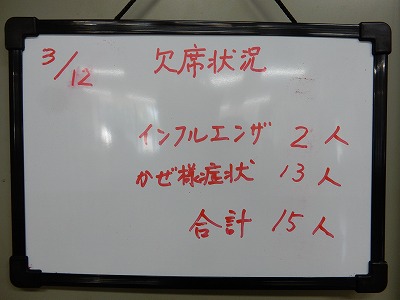 3/12 欠席状況
インフルエンザ 2人
かぜ様症状 13人
合計 15人